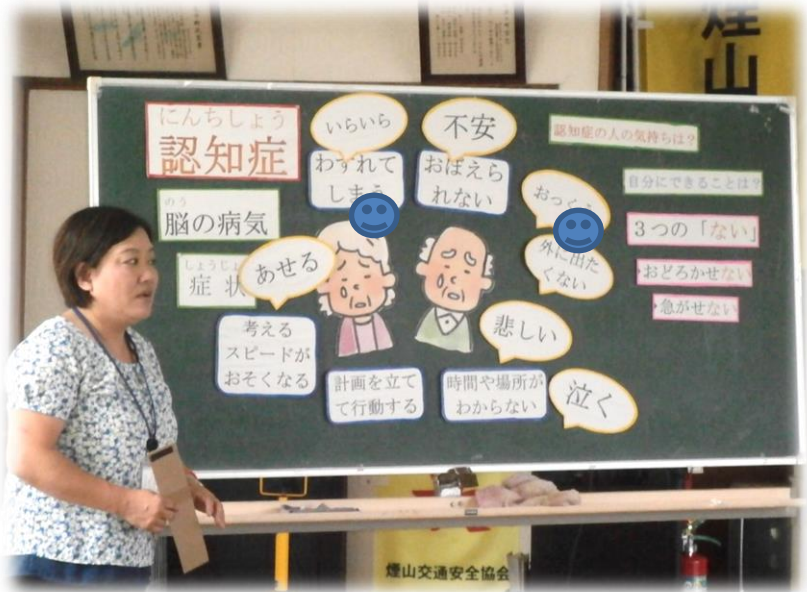 にんちしょう
認知症
のう
脳の病気
症状
いらいら
不安
わすれて
しまう
おぼえら
れない
おっくう
外に出た
くない
あせる
悲しい
泣く
考える
スピードが
おそくなる
計画を立て
て行動する
時間や場所が
わからない
認知症の人の気持ちは？
自分にできることは？
3つの「ない」
・おどろかせない
・急がせない
煙山
煙山交通安全協会